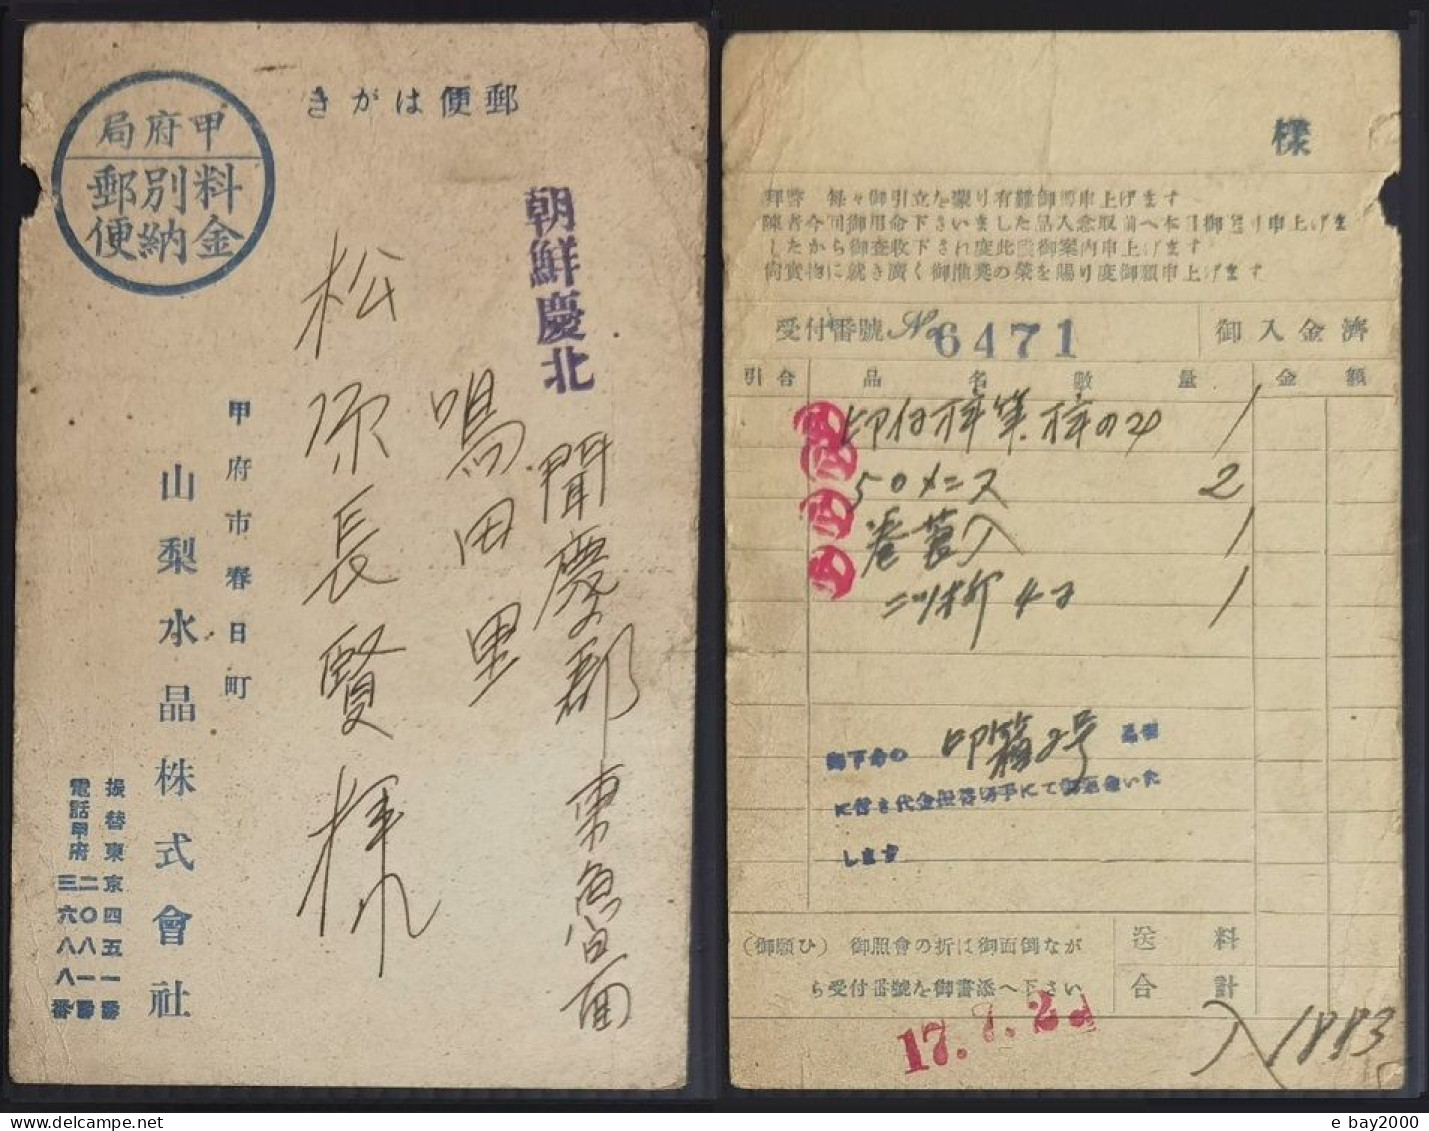 郵便はがき
甲府局
料金
別納
郵便
朝鮮慶北
聞慶郡東魯面
鳴田里
松原長賢様
甲府市春日町
山梨水晶株式會社
振替東京四五一番
電話甲府二〇八一番
三六八八番
樣
拜啓 每々御引立を蒙り有難御禮申上げます
陳者今回御用命下さいました品入念取揃へ本日御送り申上げま
したから御査收下され度此段御案內申上げます
尙實物に就き廣く御推奬の榮を賜り度御願申上げます
受付番號 No 6471 御入金濟
引合 品名 數量 金額
1
50メニス 2
1
1
御下命の 印籠2号 品切
に付き代金は替切手にて御返金いた
します
(御願ひ) 御照會の折は御面倒なが
ら受付番號を御書添へ下さい
送料
合計
17.7.2
入 1883
e bay2000